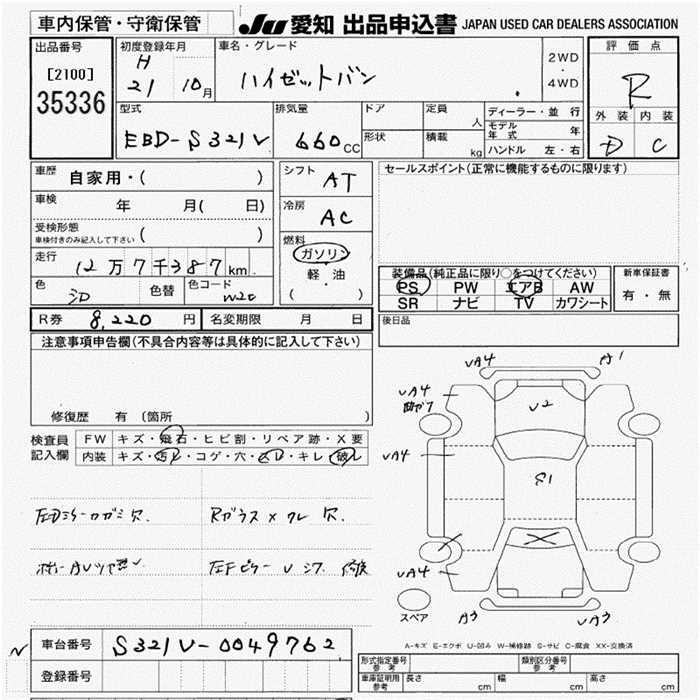 車内保管・守衛保管
JU 愛知 出品申込書 JAPAN USED CAR DEALERS ASSOCIATION
出品番号
[2100]
35336
初度登録年月
H
21 10月
車名・グレード
ハイゼットバン
2WD
・
4WD
評価点
R
外装 内装
D C
型式
EBD-S321V
排気量
660cc
ドア
形状
定員
人
積載
kg
ディーラー・並行
モデル年式 年
ハンドル 左・右
車歴
自家用・( )
車検
年 月( 日)
受検形態
車検付きのみ記入して下さい ( )
走行
12万7千387km
色
色替
色コード
W20
シフト
AT
冷房
AC
燃料
ガソリン
軽・油
( )
セールスポイント(正常に機能するものに限ります)
装備品(純正品に限り○をつけてください)
PS PW エアB AW
SR ナビ TV カワシート
新車保証書
有・無
後日品
R券 8,220円
名変期限 月 日
注意事項申告欄(不具合内容等は具体的に記入して下さい)
修復歴 有 〔箇所 〕
検査員
記入欄
FW キズ・飛石・ヒビ割・リペア跡・X要
内装 キズ・汚レ・コゲ・穴・ビレ・キレ・破レ
左Dミラーカガミ欠.
Rガラス×クレ 欠.
左Fピラー U シワ
UA4
A1
UA4
UA4
U2
S1
UA4
A3
UA3
スペア
A-キズ E-エクボ U-凹み W-補修跡 S-サビ C-腐食 XX-交換済
N
車台番号 S321V-0049762
登録番号
形式指定番号
参考
類別区分番号
参考
車庫証明用
参考
長さ cm 幅 cm 高さ cm